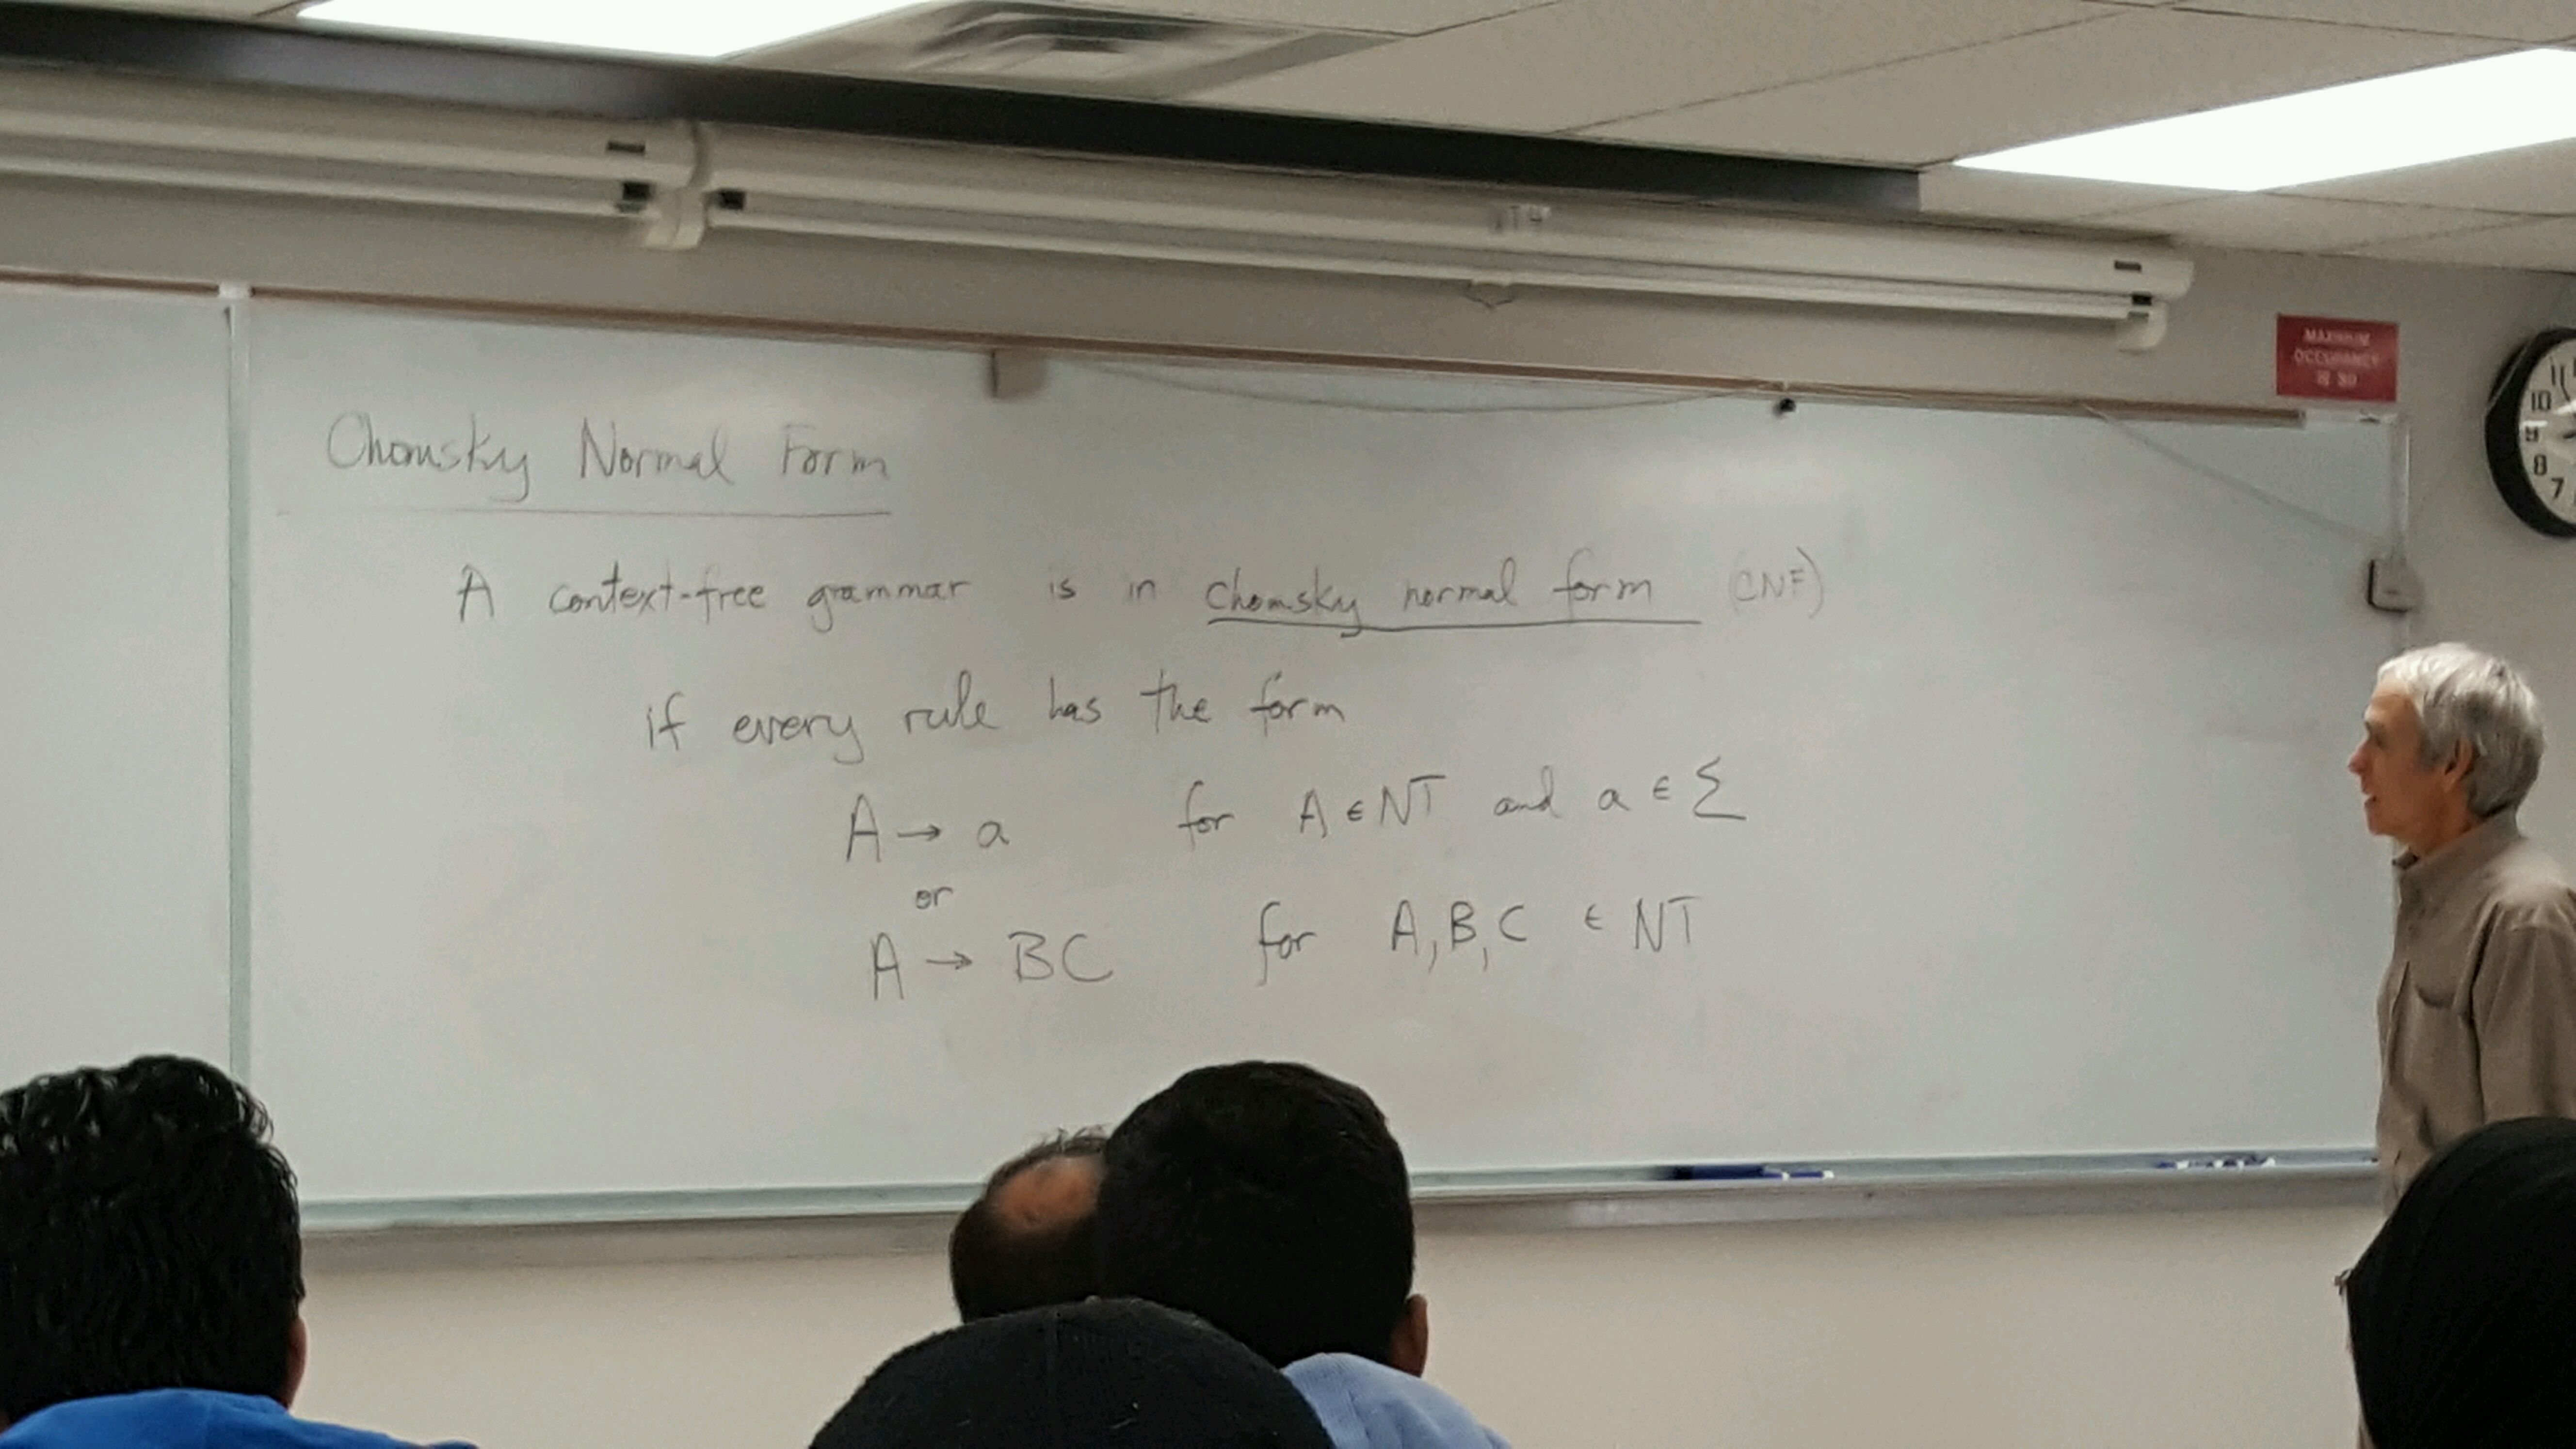 Chomsky Normal Form
A context-free grammar is in Chomsky normal form (CNF)
if every rule has the form
A → a for A ∈ NT and a ∈ Σ
or
A → BC for A, B, C ∈ NT
MAXIMUM
OCCUPANCY
IS
11
10
9
8
7